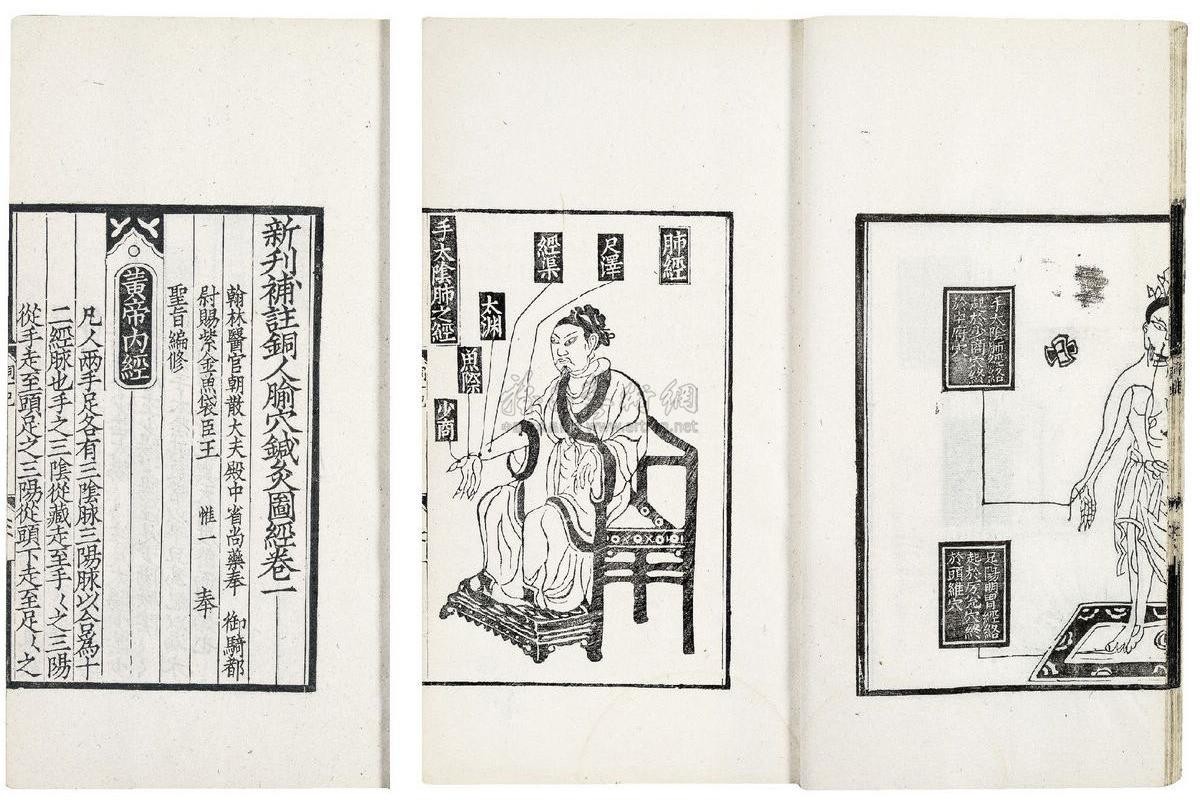 新刋補註銅人腧穴鍼灸圖經卷一
翰林醫官朝散大夫殿中省尚藥奉 御騎都
尉賜紫金魚袋臣王 惟一 奉
聖旨編修
黃帝内經
凡人兩手足各有三陰脉三陽脉以合爲十
二經脉也手之三陰從藏走至手〻之三陽
從手走至頭足之三陽從頭下走至足〻之
肺經
尺澤
經渠
太淵
魚際
少商
手太陰肺之經
手太陰肺經絡
起於少商穴終
於中府穴
足陽明胃經絡
起於厉兊穴終
於頭維穴